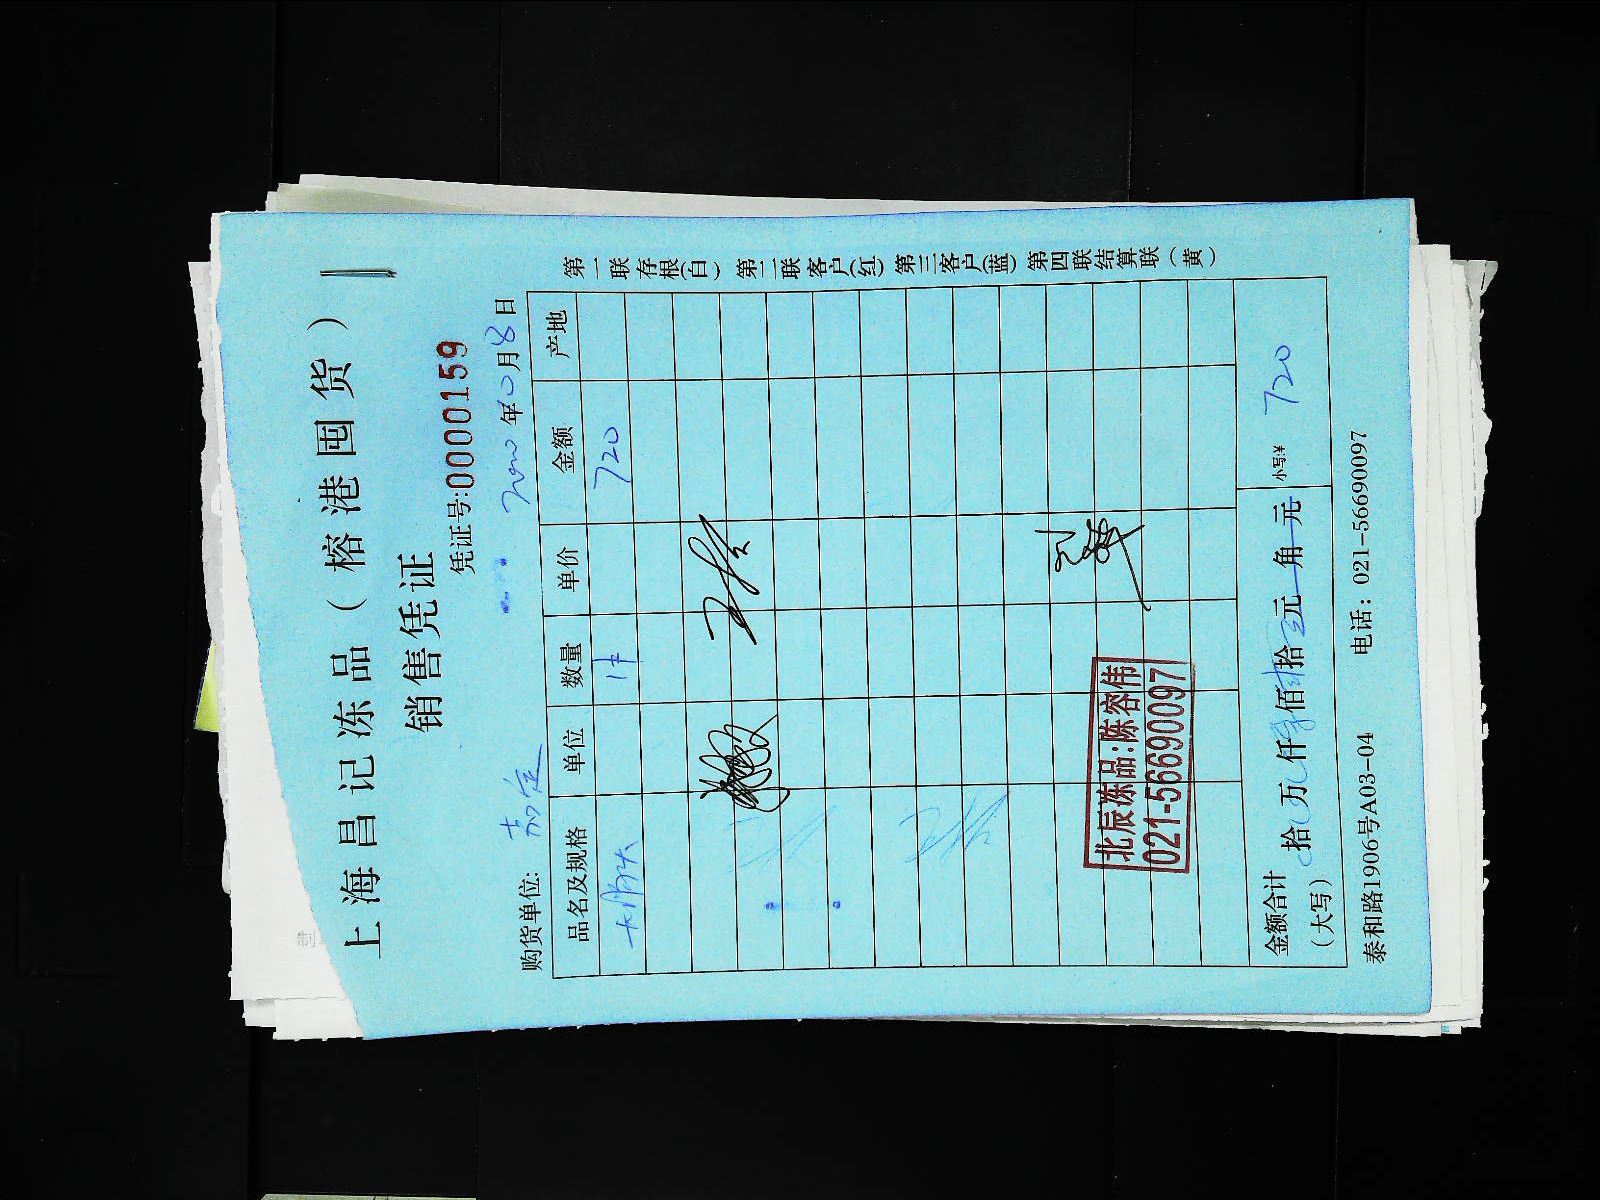 上海昌记冻品（榕港囤货）
销售凭证
凭证号:0000159
购货单位: 嘉定 年10月8日
品名及规格 单位 数量 单价 金额 产地
720
北辰冻品:陈容伟
021-56690097
金额合计
（大写） 拾 万 仟 佰 拾 元 角 元 小写:¥ 720
泰和路1906号A03-04 电话：021-56690097
第一联存根(白) 第二联客户(红) 第三客户(蓝) 第四联结算联（黄）